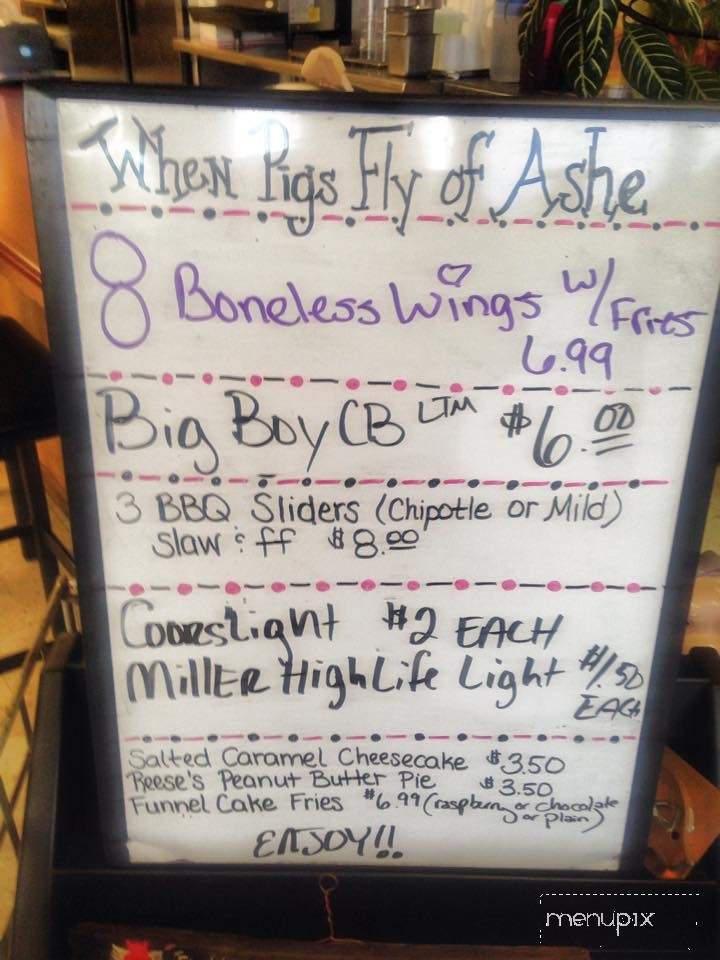 When Pigs Fly of Ashe
8 Boneless Wings w/ Fries
6.99
Big Boy CB LTM $6.00
3 BBQ Sliders (Chipotle or Mild)
Slaw & ff $8.00
Coors Light $2 EACH
Miller High Life Light $1.50
EACH
Salted Caramel Cheesecake $3.50
Reese's Peanut Butter Pie $3.50
Funnel Cake Fries $6.99 (raspberry or chocolate
or plain)
ENJOY!!
menupix